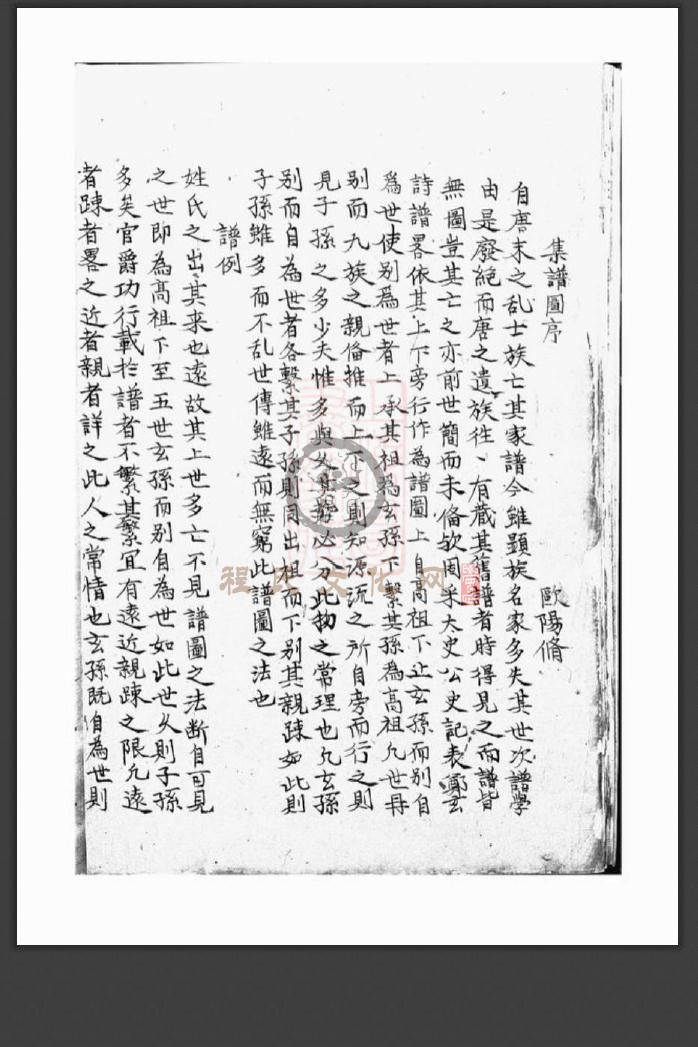 集譜圖序
歐陽脩
自唐末之乱士族亡其家譜今雖顕族名家多失其世次譜學
由是廢絶而唐之遺族徃、有藏其舊譜者時得見之而譜皆
無圖豈其亡之亦前世簡而未俻欤因采大史公史記表鄭玄
詩譜畧依其上下旁行作為譜圖上自髙祖下止玄孫而别自
爲世使别爲世者上承其祖為玄孫下繫其孫為髙祖凢世再
别而九族之親俻推而上下之則知源流之所自旁而行之則
見子孫之多少夫惟多與久其勢必分此物之常理也凢玄孫
别而自為世者各繫其子孫則同出祖而下别其親踈如此則
子孫雖多而不乱世傳雖遠而無窮此譜圖之法也
譜例
姓氏之出其来也遠故其上世多亡不見譜圖之法断自可見
之世即為髙祖下至五世玄孫而别自為世如此世乆則子孫
多矣官爵功行載於譜者不繁其繫宜有遠近親踈之限凢遠
者踈者畧之近者親者詳之此人之常情也玄孫既自為世則
程氏文化网